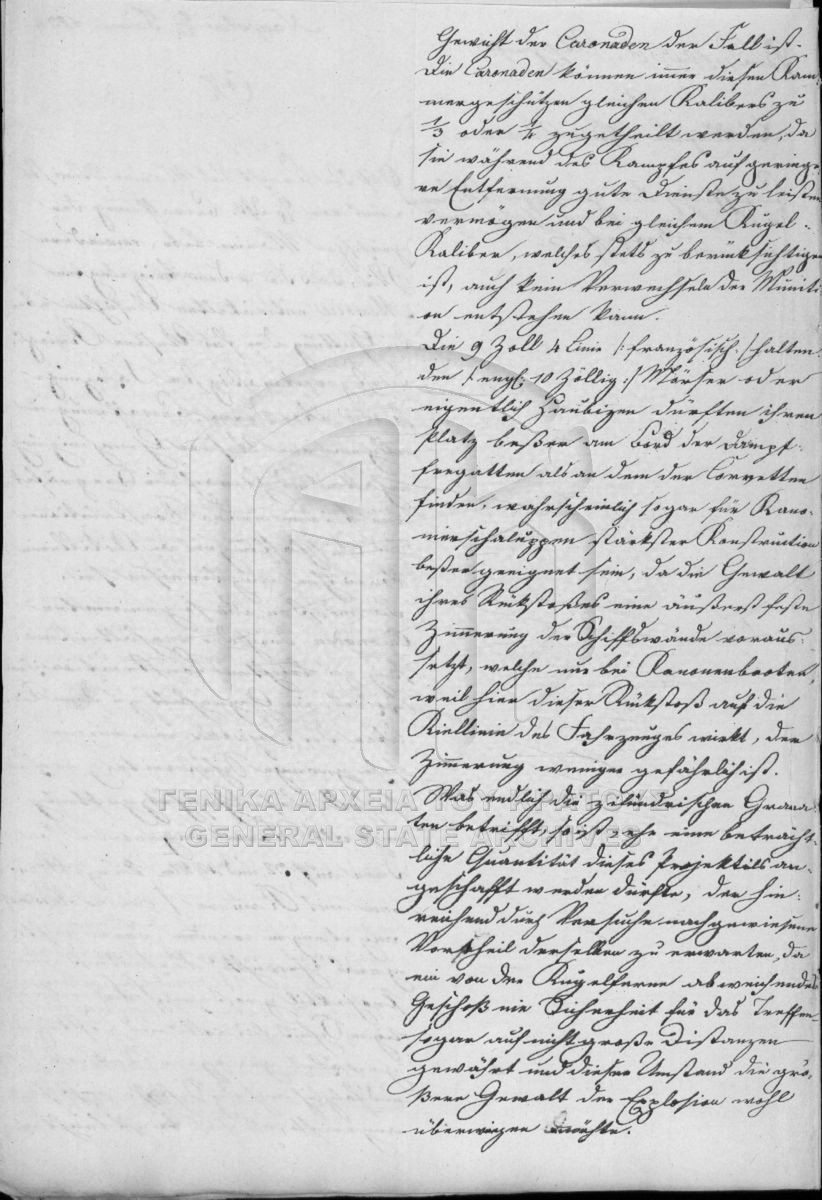 Gewicht der Caronaden der Fall ist.
Die Caronaden können immer diesen Kam-
mergeschützen gleichen Kalibers zu
1/3 oder 1/4 zugetheilt werden, da
sie während des Kampfes auf gerin­ge-
re Entfernung gute Dienste zu leisten
vermögen und bei gleichem Kugel-
Kaliber, welches stets zu berücksichtigen
ist, auch kein Verwechseln der Muniti-
on entstehen kann.
Die 9 Zoll 4 Linie /: französisch :/ halten-
den /: engl: 10 Zöllig :/ Mörser oder
eigentlich Haubizen dürften ihren
Platz beßer am Bord der Dampf-
fregatten als an dem der Corvetten
finden, wahrscheinlich sogar für Kano-
nierschaluppen stärkster Konstruction
beßer geeignet sein, da die Gewalt
ihres Rükstoßes eine äußerst feste
Zimmerung der Schiffswände voraus-
setzt, welche nur bei Kanonenbooten,
weil hier dieser Rükstoß auf die
Kiellinie des Fahrzeuges wirkt, der
Zimmerung weniger gefährlich ist.
Was endlich die zilindrischen Grana-
ten betrifft, so ist, ehe eine beträcht-
liche Quantität dieses Projektils an-
geschafft werden dürfte, der hin-
reichend durch Versuche nachgewiesene
Vortheil derselben zu erwarten, da
ein von der Kugelform abweichendes
Geschoß nie Sicherheit für das Treffen
sogar auf nicht große Distanzen
gewährt und dieser Umstand die grö-
ßere Gewalt der Explosion wohl
überwiegen möchte.
ΓΕΝΙΚΑ ΑΡΧΕΙΑ ΤΟΥ ΚΡΑΤΟΥΣ
GENERAL STATE ARCHIVES